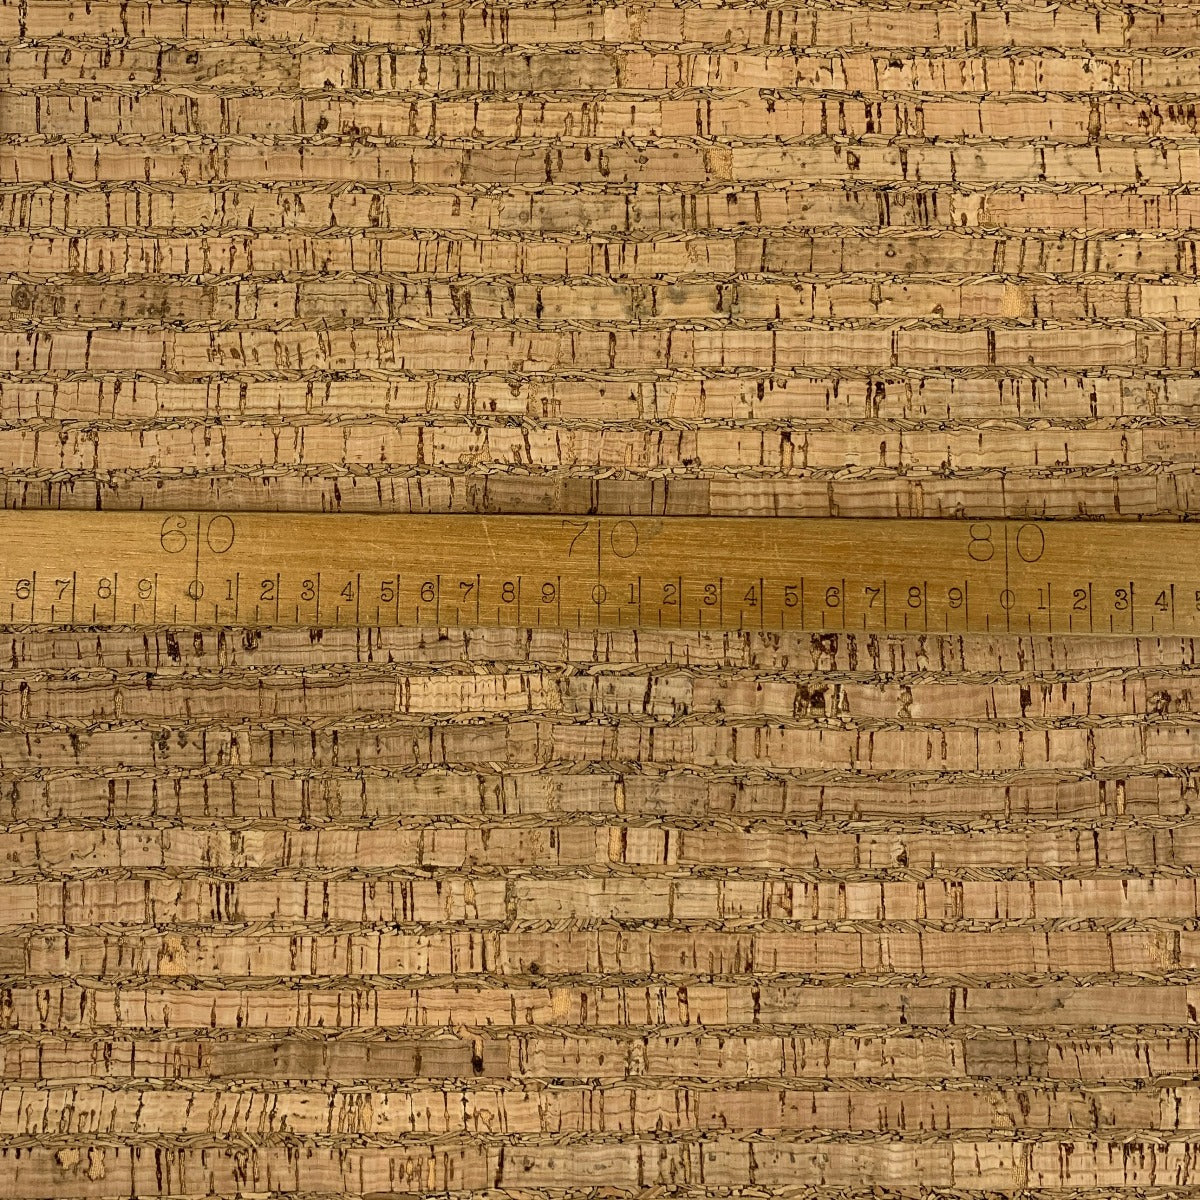 60 70 80
6 7 8 9 0 1 2 3 4 5 6 7 8 9 0 1 2 3 4 5 6 7 8 9 0 1 2 3 4